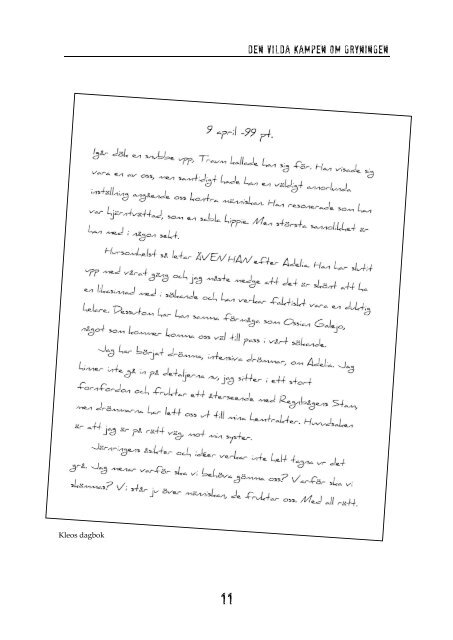 DEN VILDA KAMPEN OM GRYNINGEN
9 april -99 pt.
Igår dök en snubbe upp, Traum kallade han sig för. Han visade sig
vara en av oss, men samtidigt hade han en väldigt annorlunda
inställning angående oss kontra människan. Han resonerade som han
var hjärntvättad, som en sabla hippie. Men största sannolikhet är
han med i någon sekt.
Hursomhelst så letar ÄVEN HAN efter Adelia. Han har slutit
upp med vårat gäng och jag måste medge att det är skönt att ha
en likasinnad med i sökande och han verkar faktiskt vara en duktig
helare. Dessutom har han samma förmåga som Ossian Galejo,
något som kommer komma oss väl till pass i vårt sökande.
Jag har börjat drömma, intensiva drömmar, om Adelia. Jag
hinner inte gå in på detaljerna nu, jag sitter i ett stort
fornfordon och fruktar ett återseende med Regnbågens Stam,
men drömmarna har lett oss ut till mina hemtrakter. Huvudsaken
är att jag är på rätt väg mot min syster.
Järnringens åsikter och idéer verkar inte helt tagna ur det
grå. Jag menar varför ska vi behöva gömma oss? Varför ska vi
skämmas? Vi står ju över människan, de fruktar oss. Med all rätt.
Kleos dagbok
11